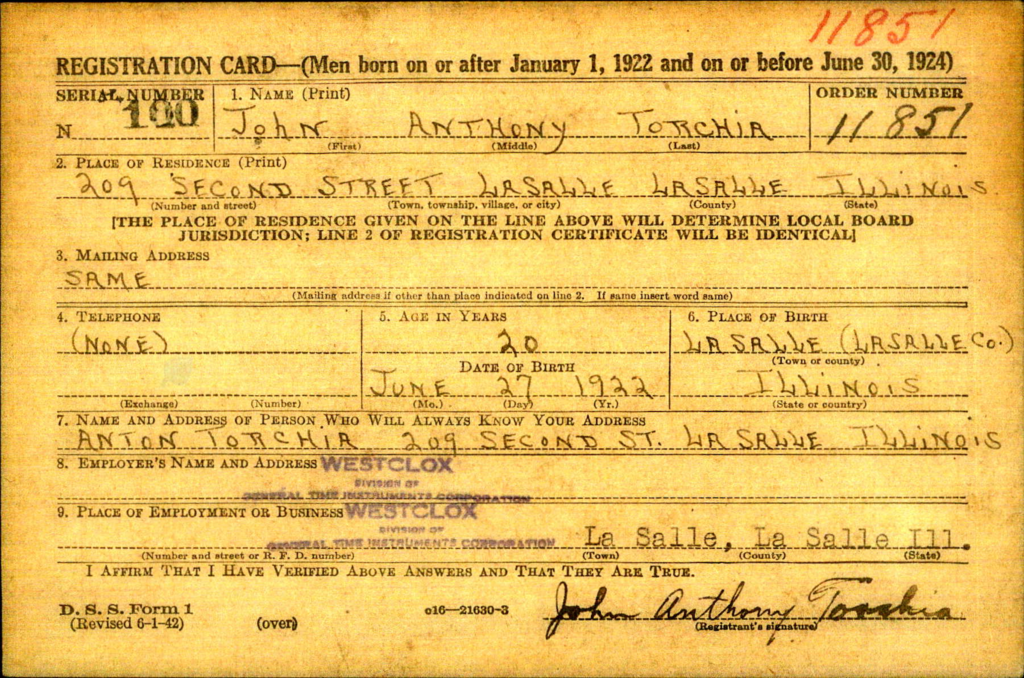 11851
REGISTRATION CARD—(Men born on or after January 1, 1922 and on or before June 30, 1924)
SERIAL NUMBER
1. NAME (Print)
ORDER NUMBER
N 190
JOHN ANTHONY TORCHIA
11851
(First) (Middle) (Last)
2. PLACE OF RESIDENCE (Print)
209 SECOND STREET LASALLE LASALLE ILLINOIS
(Number and street) (Town, township, village, or city) (County) (State)
[THE PLACE OF RESIDENCE GIVEN ON THE LINE ABOVE WILL DETERMINE LOCAL BOARD
JURISDICTION; LINE 2 OF REGISTRATION CERTIFICATE WILL BE IDENTICAL]
3. MAILING ADDRESS
SAME
(Mailing address if other than place indicated on line 2. If same insert word same)
4. TELEPHONE
5. AGE IN YEARS
6. PLACE OF BIRTH
(NONE)
20
LASALLE (LASALLE CO.)
(Town or county)
DATE OF BIRTH
JUNE 27 1922
ILLINOIS
(Exchange) (Number)
(Mo.) (Day) (Yr.)
(State or country)
7. NAME AND ADDRESS OF PERSON WHO WILL ALWAYS KNOW YOUR ADDRESS
ANTON TORCHIA 209 SECOND ST. LASALLE ILLINOIS
8. EMPLOYER'S NAME AND ADDRESS WESTCLOX
DIVISION OF
GENERAL TIME INSTRUMENTS CORPORATION
9. PLACE OF EMPLOYMENT OR BUSINESS WESTCLOX
DIVISION OF
GENERAL TIME INSTRUMENTS CORPORATION La Salle, La Salle Ill.
(Number and street or R. F. D. number) (Town) (County) (State)
I AFFIRM THAT I HAVE VERIFIED ABOVE ANSWERS AND THAT THEY ARE TRUE.
D. S. S. Form 1
(Revised 6-1-42) (over) c16—21630-3
John Anthony Torchia
(Registrant's signature)